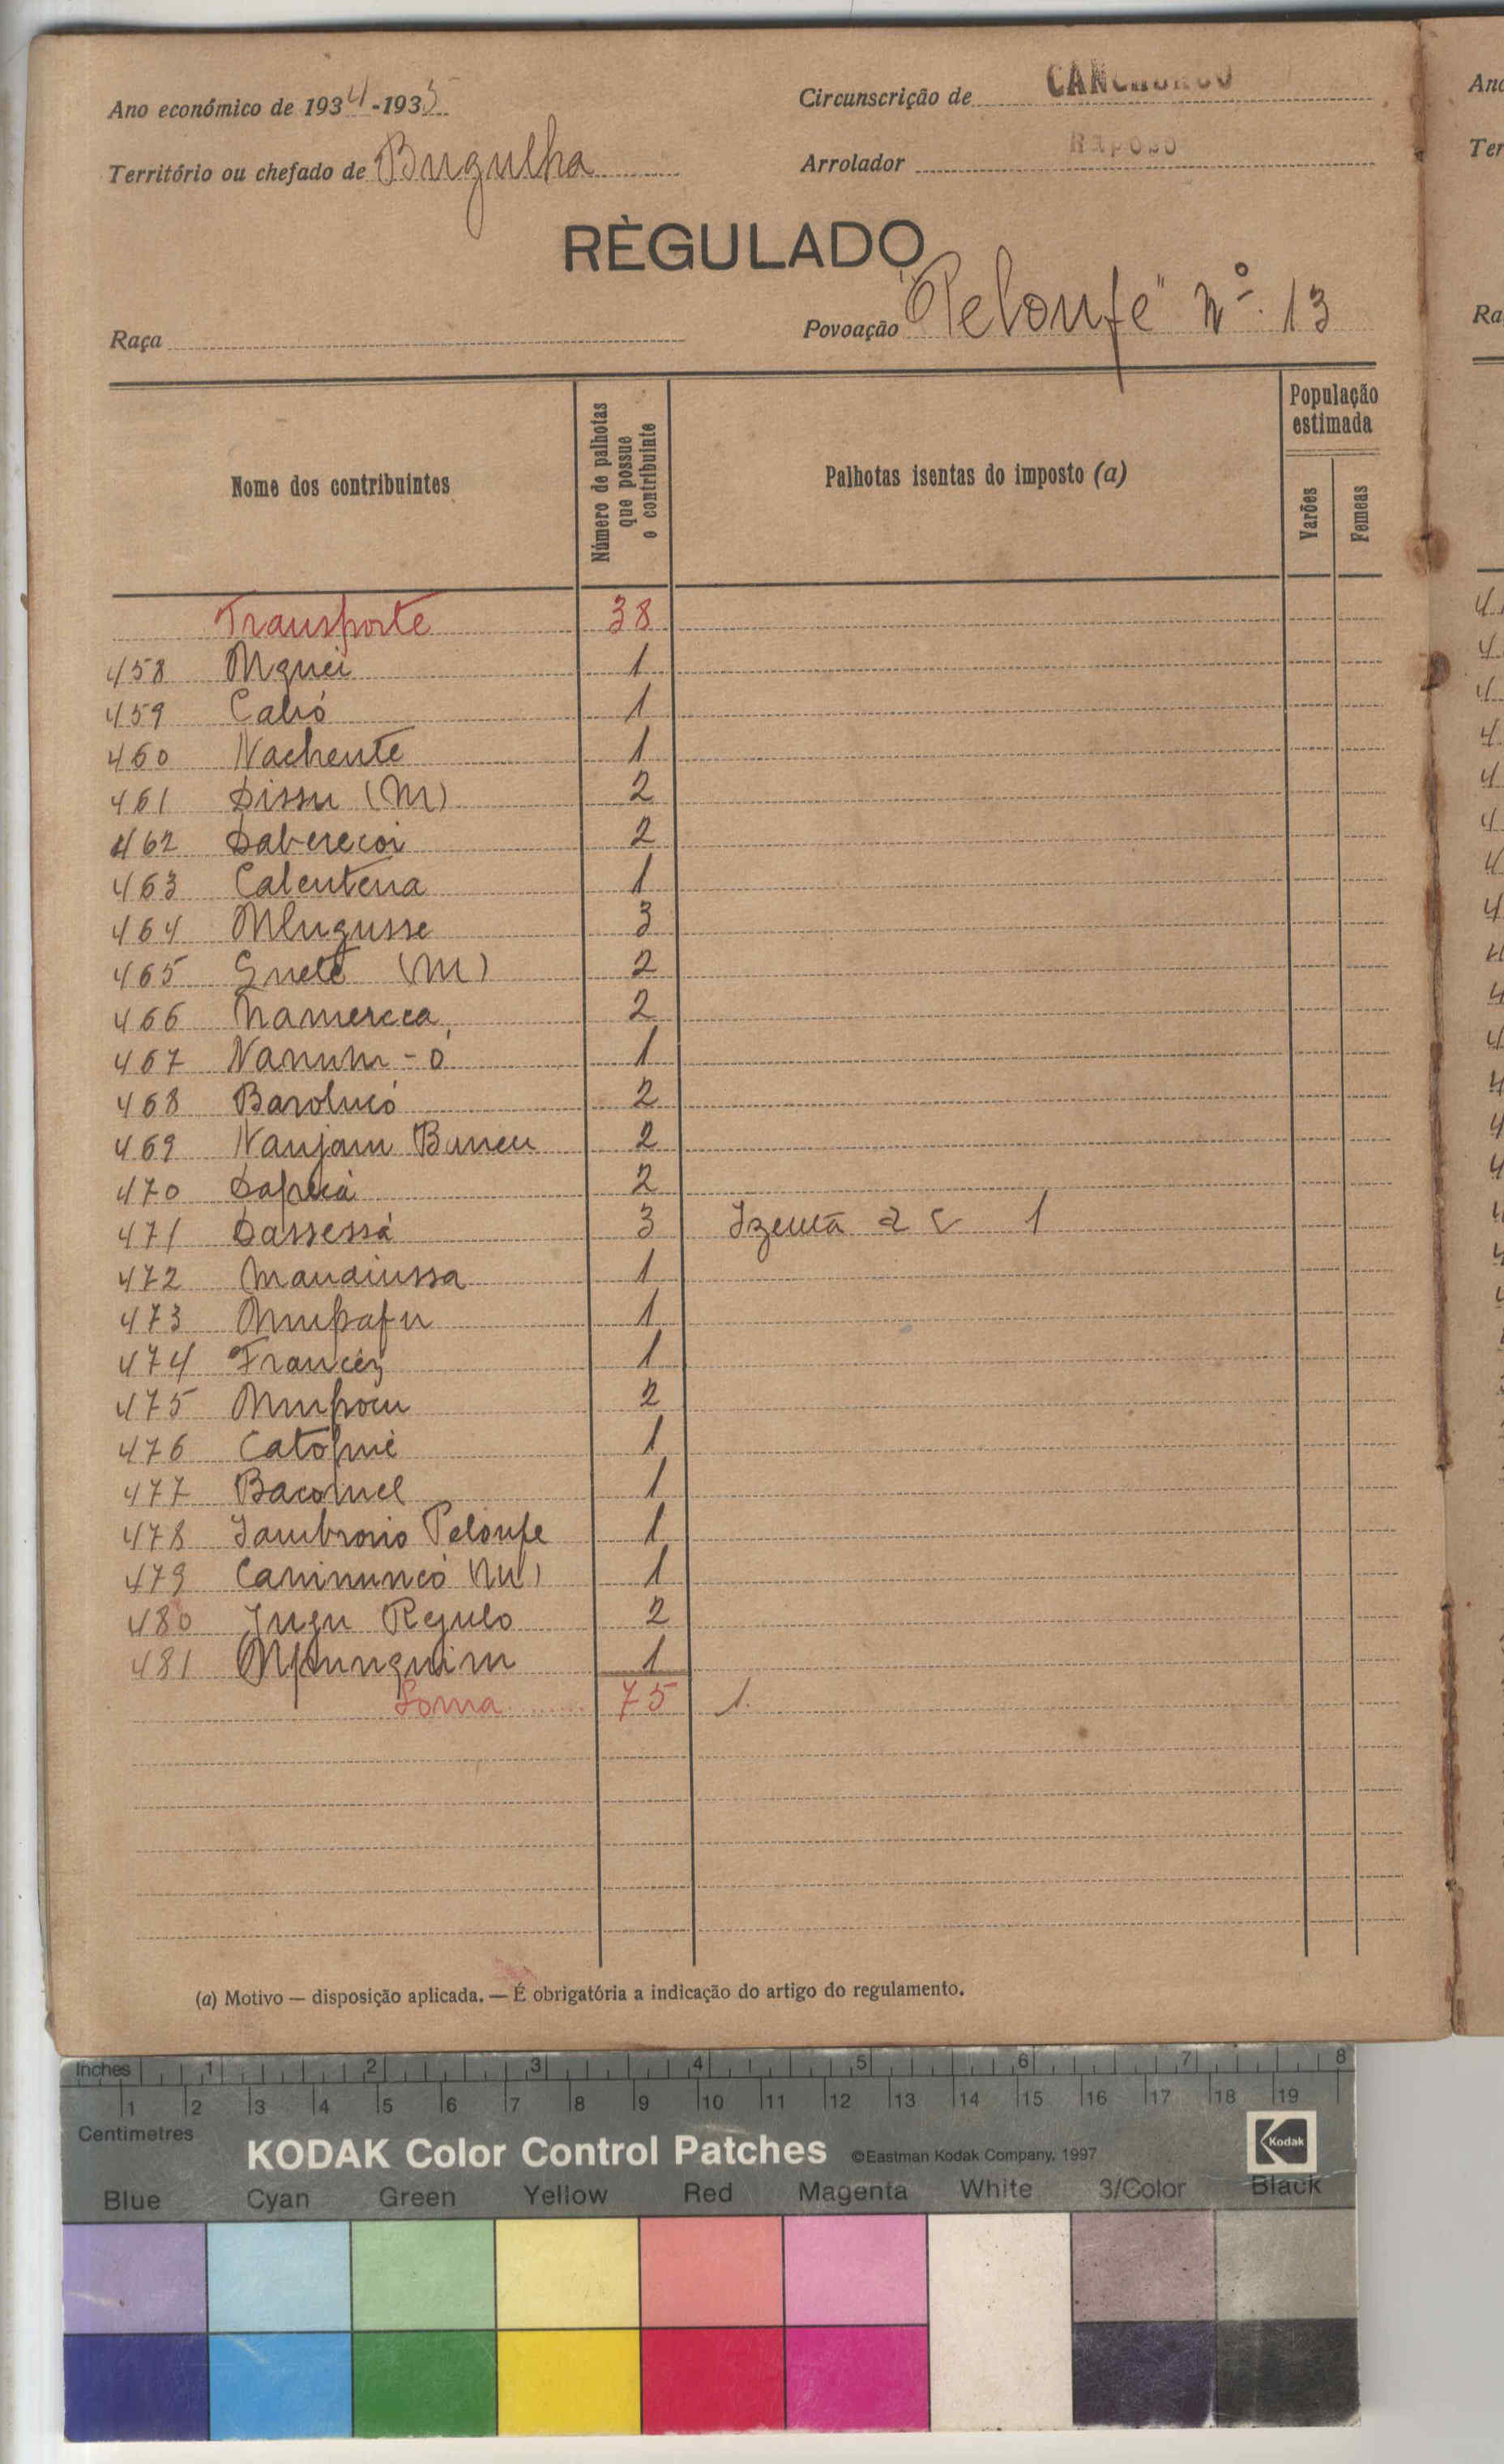 Ano económico de 1934-1935
Circunscrição de CANCHUNGO
Território ou chefado de Bugulha
Arrolador Raposo
RÈGULADO
Raça
Povoação "Peloufe" Nº. 13
Nome dos contribuintes
Número de palhotas que possue o contribuinte
Palhotas isentas do imposto (a)
População estimada
Varões
Femeas
Transporte 38
458 Mguei 1
459 Calió 1
460 Nachente 1
461 Dissu (M) 2
462 Daberecoi 2
463 Calentena 1
464 Mlugusse 3
465 Guetè (M) 2
466 Namercca 2
467 Nanum-ó 1
468 Barolucó 2
469 Nanjam Buneu 2
470 2
471 Dassessá 3 Izenta 2 c 1
472 Mandiussa 1
473 Mmpafu 1
474 Francêz 1
475 Mmpocu 2
476 1
477 Bacomel 1
478 Jambronio Peloufe 1
479 Caninuncó (M) 1
480 Jugu Regulo 2
481 Mpunguim 1
Soma 75 1.
(a) Motivo — disposição aplicada. — É obrigatória a indicação do artigo do regulamento.
Inches 1 2 3 4 5 6 7 8
1 2 3 4 5 6 7 8 9 10 11 12 13 14 15 16 17 18 19
Centimetres
KODAK Color Control Patches ©Eastman Kodak Company, 1997 Kodak
Blue Cyan Green Yellow Red Magenta White 3/Color Black